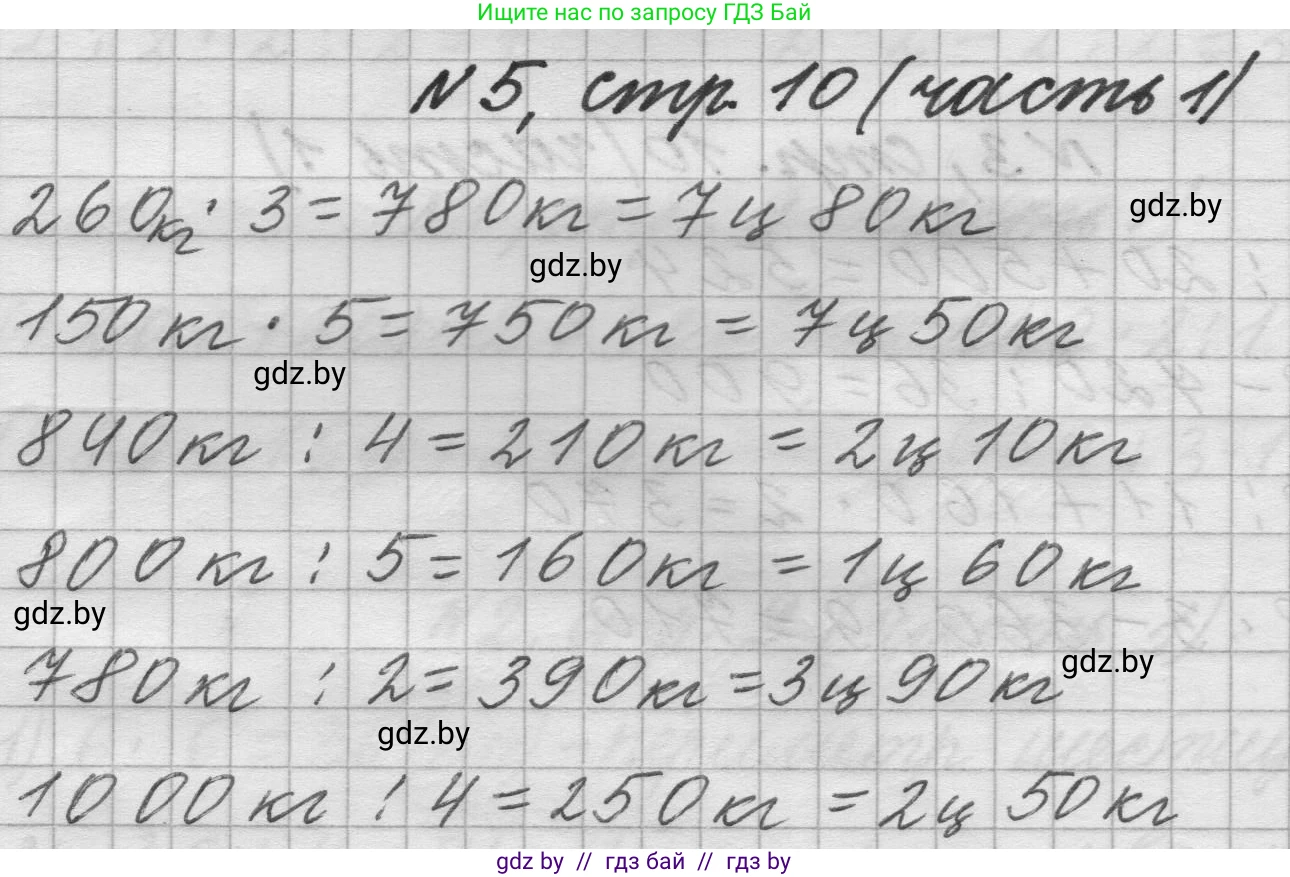 Ищите нас по запросу ГДЗ Бай
N 5, стр. 10 (часть 1)
260кг · 3 = 780кг = 7ц 80кг
gdz.by
gdz.by
150кг · 5 = 750кг = 7ц 50кг
gdz.by
840кг : 4 = 210кг = 2ц 10кг
800кг : 5 = 160кг = 1ц 60кг
gdz.by
780кг : 2 = 390кг = 3ц 90кг
gdz.by
gdz.by
1000кг : 4 = 250кг = 2ц 50кг
gdz by // гдз бай // гдз by